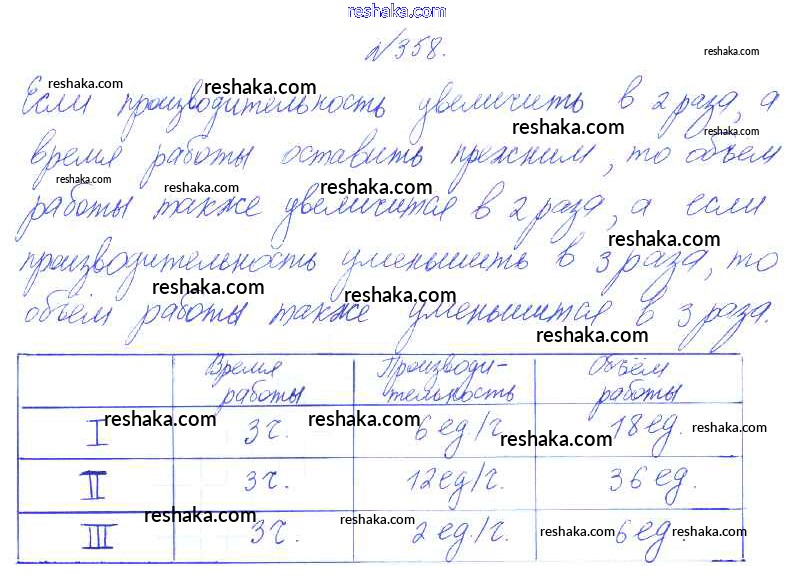 reshaka.com
№358.
reshaka.com
reshaka.com reshaka.com
Если производительность увеличить в 2 раза, а
reshaka.com reshaka.com
время работы оставить прежним, то объём
reshaka.com reshaka.com reshaka.com
работы также увеличится в 2 раза, а если
reshaka.com
производительность уменьшить в 3 раза, то
reshaka.com reshaka.com
объём работы также уменьшится в 3 раза.
reshaka.com
Время работы Производи-тельность Объём работы
reshaka.com reshaka.com reshaka.com reshaka.com
I 3 ч. 6 ед/ч. 18 ед.
II 3 ч. 12 ед/ч. 36 ед.
reshaka.com reshaka.com reshaka.com reshaka.com
III 3 ч. 2 ед./ч. 6 ед.